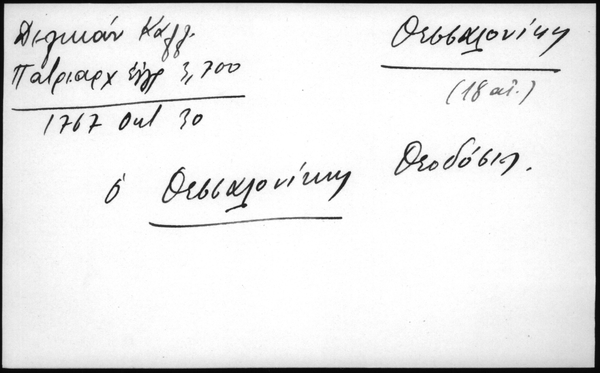 Δελικάν Καλλ.
Πατριαρχ Εγγρ 3,700
1767 Οκτ 30
Θεσσαλονίκη
(18 αἰ.)
ὁ Θεσσαλονίκης Θεοδόσιος.